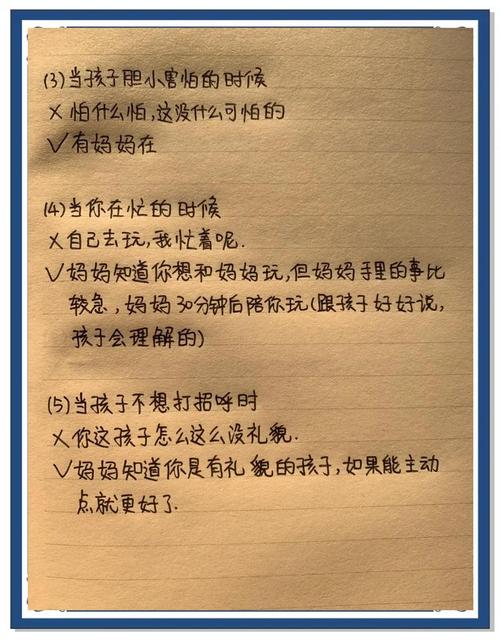 (3)当孩子胆小害怕的时候
×怕什么怕,这没什么可怕的
✓有妈妈在
(4)当你在忙的时候
×自己去玩,我忙着呢.
✓妈妈知道你想和妈妈玩,但妈妈手里的事比
较急,妈妈30分钟后陪你玩(跟孩子好好说,
孩子会理解的)
(5)当孩子不想打招呼时
×你这孩子怎么这么没礼貌.
✓妈妈知道你是有礼貌的孩子,如果能主动
点就更好了.